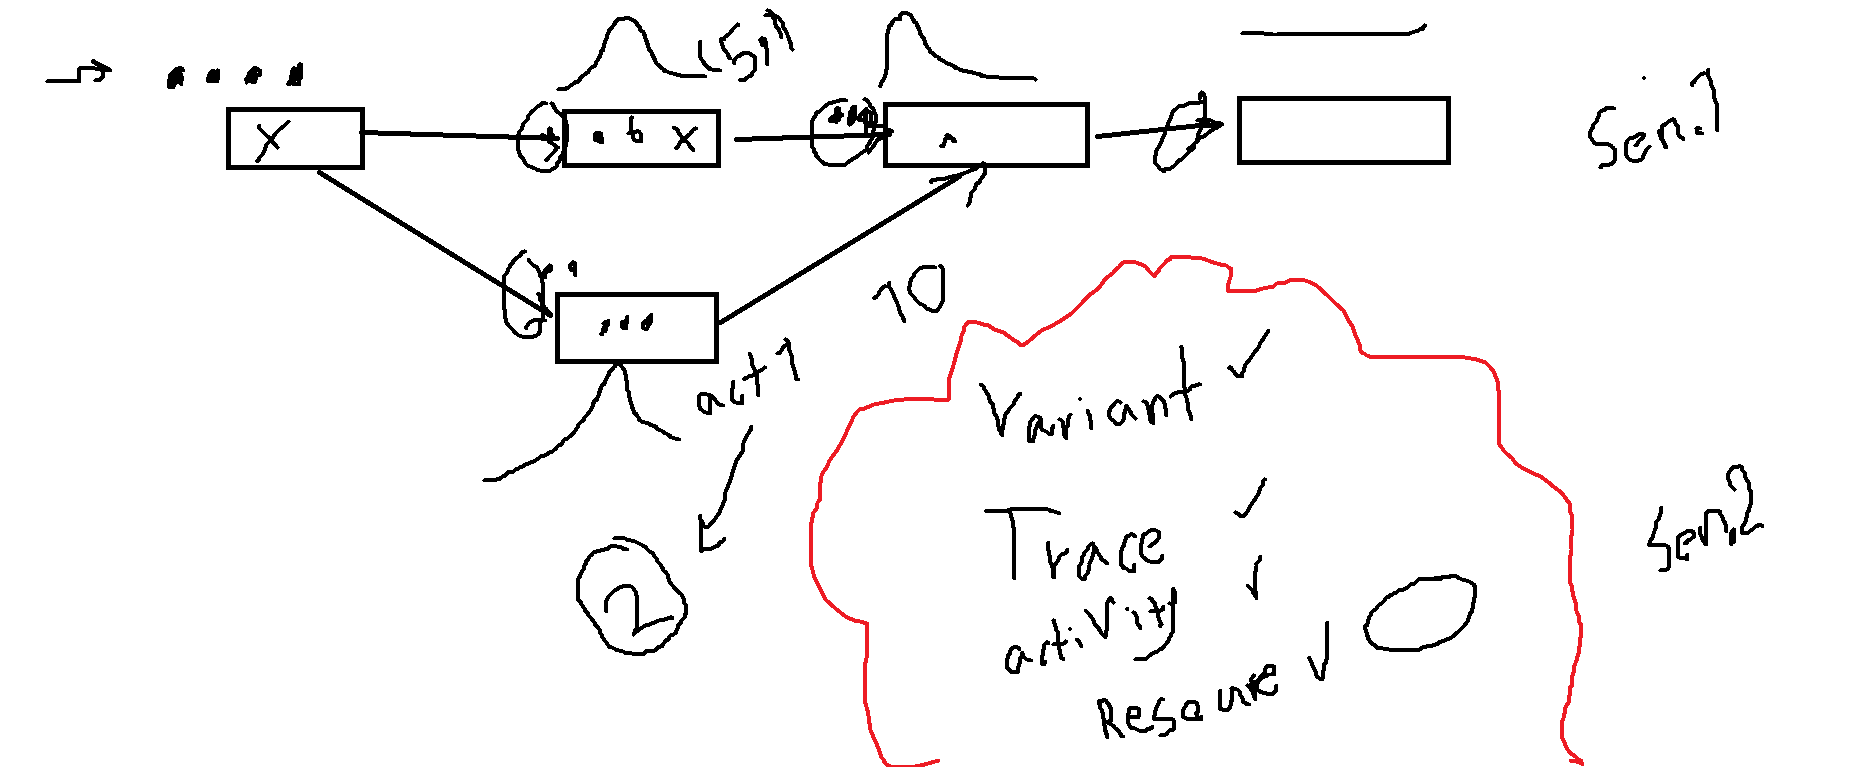 (5,1)
X
b X
Sen.1
10
act 1
Variant ✓
2
Trace ✓
activity ✓
Resource ✓
Sen.2